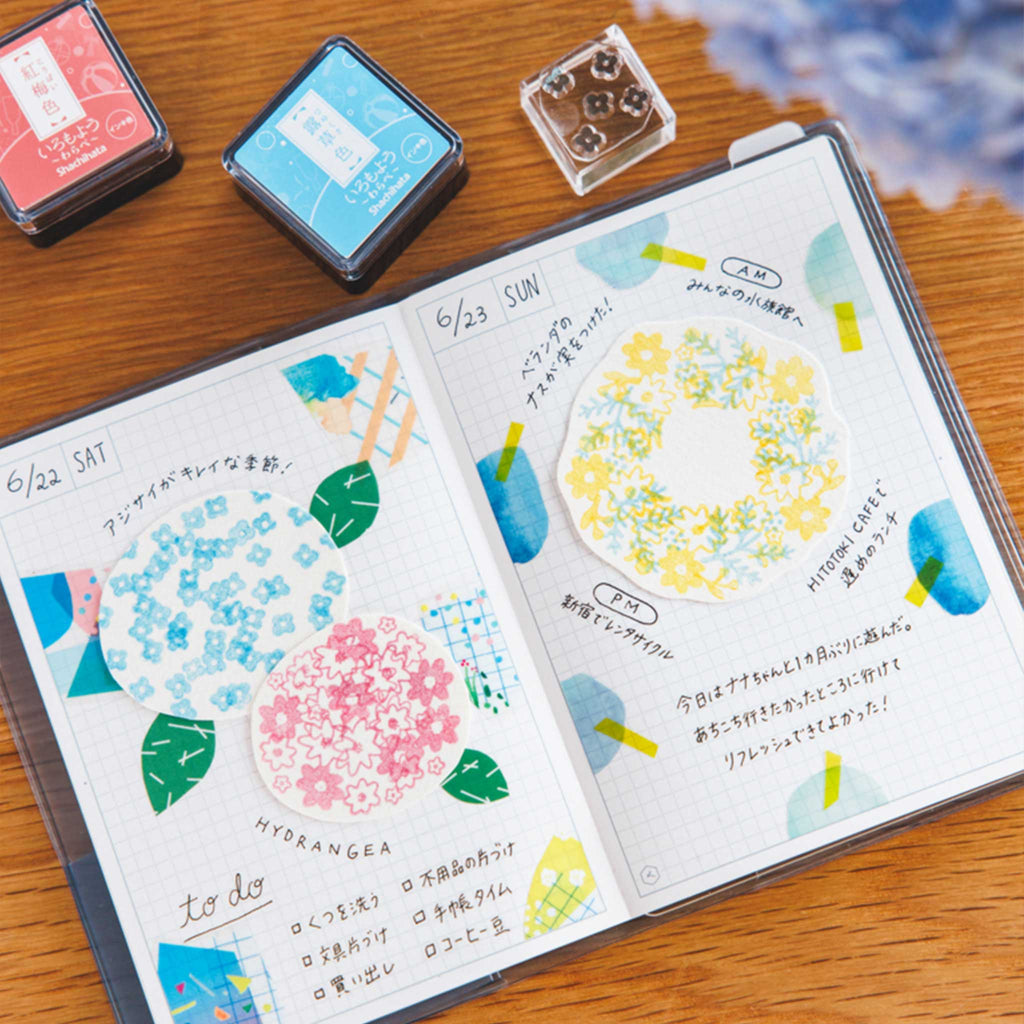 紅梅色
こうばい
いろもよう
～わらべ～
インキ色
Shachihata
露草色
いろもよう
～わらべ～
インキ色
Shachihata
6/22 SAT
アジサイがキレイな季節!
HYDRANGEA
to do
くつを洗う
文具片づけ
買い出し
不用品の片づけ
手帳タイム
コーヒー豆
6/23 SUN
ベランダの
ナスが実をつけた!
AM
みんなの水族館へ
HITOTOKI CAFEで
遅めのランチ
PM
新宿でレンタサイクル
今日はナナちゃんと1カ月ぶりに遊んだ。
あちこち行きたかったところに行けて
リフレッシュできてよかった!